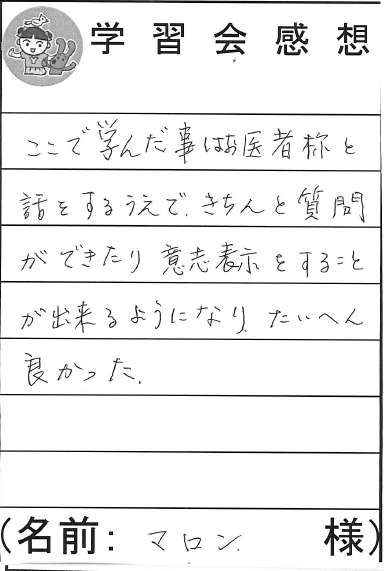 学習会感想
ここで学んだ事はお医者称と
話をするうえで、きちんと質問
ができたり意志表示をすること
が出来るようになり、たいへん
良かった。
(名前: マロン 様)